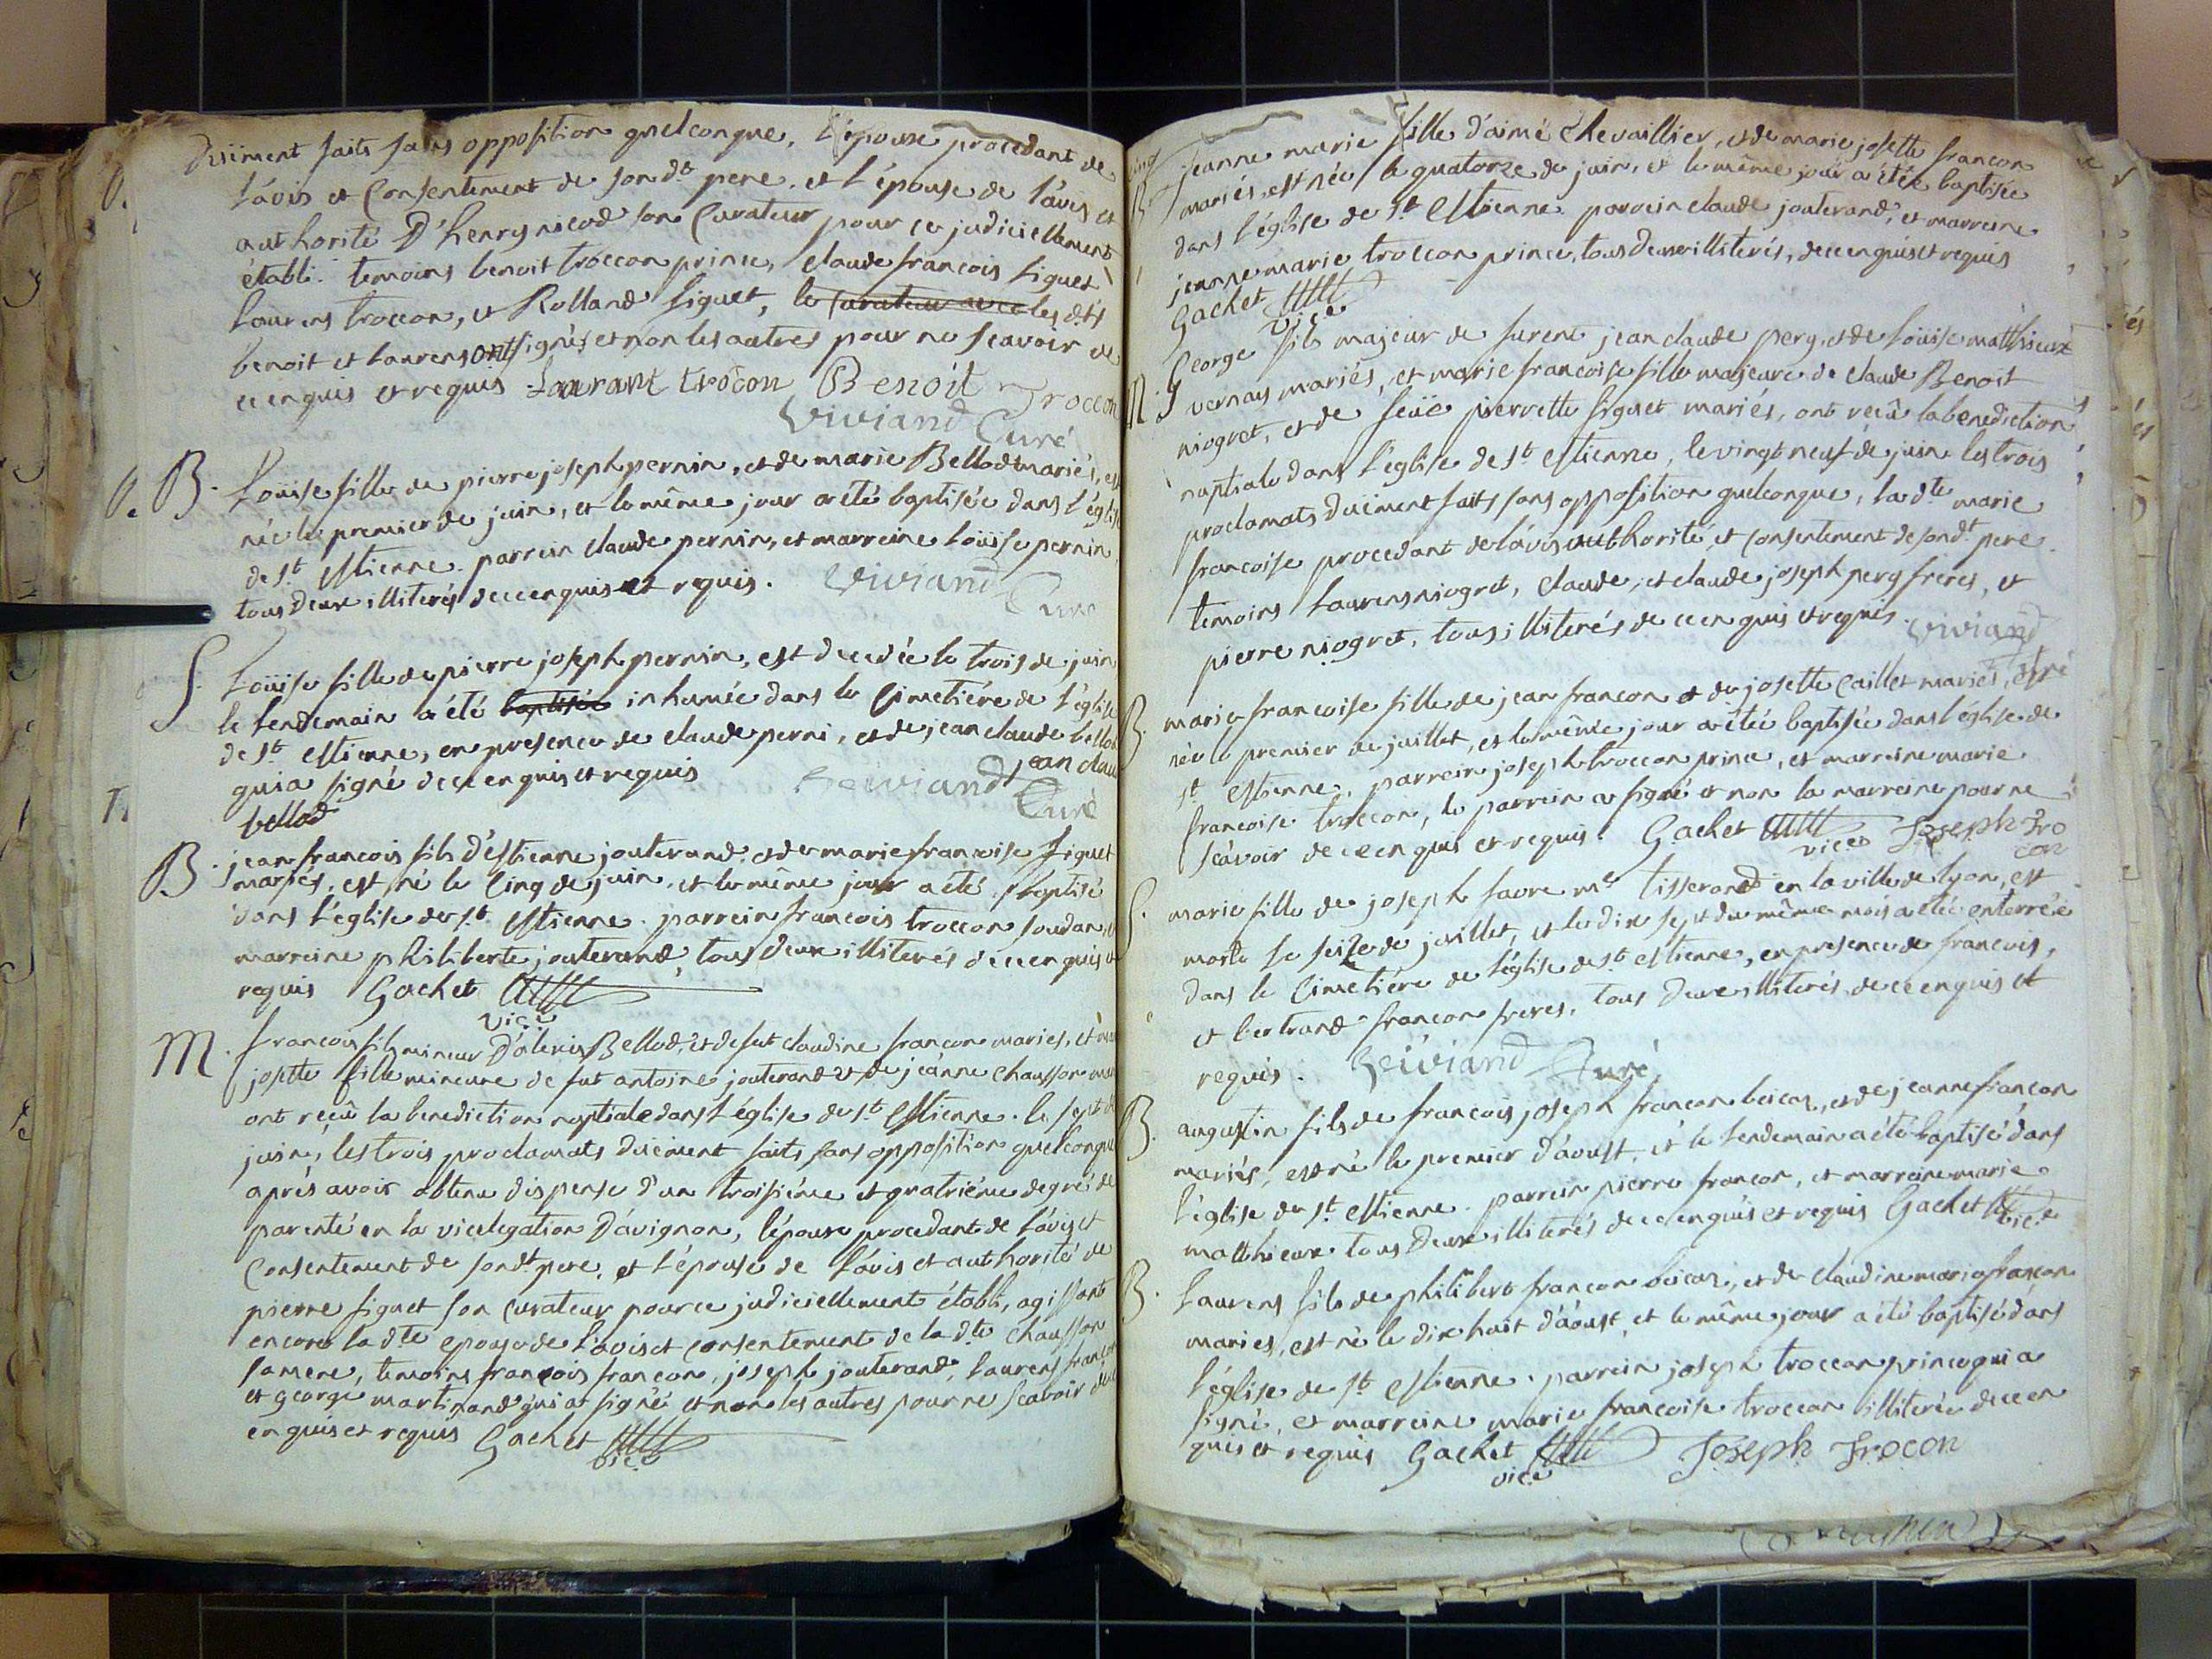 duëment faits sans opposition quelconque, l'époux procedant de
l'avis et Consentement de son dt pere. et l'épouse de l'avis et
authorité D'henry nicod son Curateur pour ce judiciellement
établi. temoins benoit troccon prince, claude francois figuet
laurens troccon, et Rolland figuet, les dts
benoit et laurens ont signés et non les autres pour ne scavoir de
ce enquis et requis Laurant trocon Benoit Troccon
Viviand Curé
B. Loüise fille de pierre joseph pernin, et de marie Bellod mariés, est
née le premier de juin, et le même jour a été baptisée dans l'églis
de st Estienne. parrein claude pernin, et marreine Loüise pernin
tous deux illiterés de ce enquis et requis. Viviand
Curé
S. Loüise fille de pierre joseph pernin, est decedée le trois de juin
le lendemain a été baptisée inhumée dans le Cimetiére de l'église
de st Estienne, en presence de claude perni, et de jean claude bellod
qui a signé de ce enquis et requis Viviand jean clau
bellod Curé
B. jean francois fils d'Estienne jouterand, et de marie francoise figuet
mariés, est né le Cinq de juin, et le même jour a été baptisé
dans l'église de st Estienne. parrein francois troccon soudan, et
marreine philiberte jouterand, tous deux illiterés de ce enquis et
requis Gachet
vice
M. francois fils mineur D'alexis Bellod, et de fut claudine francon mariés, et
josette fille mineure de fut antoine jouterand et de jeanne chausson
ont reçû la benediction nuptiale dans l'église de st Estienne. le sept de
juin, les trois proclamats duëment faits sans opposition quelconque
aprés avoir obtenu dispense d'un troisiéme et quatriéme degré de
parenté en la vicelegation D'avignon, l'époux procedant de l'avis et
Consentement de son dt pere, et l'épouse de l'avis et authorité de
pierre figuet son Curateur pour ce judiciellement établi, agissant
encore la dte epouse de l'avis et consentement de la dte chausson
sa mere, temoins francois francon, joseph jouterand, laurens francon
et george martinand qui a signé et non les autres pour ne scavoir de ce
enquis et requis Gachet
vice
B. jeanne marie fille d'aimé Chevaillier, et de marie josette francon
mariés, est née le quatorze de juin, et le même jour a étée baptisée
dans l'église de st Estienne. parrein claude jouterand, et marreine
jeanne marie troccon prince, tous deux illiterés, de ce enquis et requis
Gachet
vice
George fils majeur de furent jean claude pery, et de loüise matthieux
vernay mariés, et marie francoise fille majeure de claude Benoit
niogret, et de feüe pierrette figuet mariés, ont reçû la benediction
nuptiale dans l'église de st Estienne, le vingt neuf de juin les trois
proclamats duëment faits sans opposition quelconque, la dte marie
francoise procedant de l'avis authorité, et consentement de son dt pere.
temoins laurens niogret, claude, et claude joseph pery freres, et
pierre niogret, tous illiterés de ce enquis et requis. Viviand
Curé
B. marie francoise fille de jean francon et de josette Caillet mariés, est
née le premier de juillet, et le même jour a étée baptisée dans l'église de
st Estienne. parrein joseph troccon prince, et marreine marie
francoise troccon, le parrein a signé et non la marreine pour ne
scávoir de ce enquis et requis. Gachet vice Joseph Tro
con
S. marie fille de joseph favre me tisserand en la ville de lyon, est
morte le seize de juillet, et le dix sept du même mois a étée enterrée
dans le Cimetiére de l'église de st Estienne, en presence de francois,
et bertrand francon freres, tous deux illiterés de ce enquis et
requis. Viviand Curé
B. augustin fils de francois joseph francon beicaz, et de jeanne francon
mariés, est né le premier d'áoust, et le lendemain a été baptisé dans
l'église de st Estienne. parrein pierre francon, et marreine marie
matthieux tous deux illiterés de ce enquis et requis Gachet vice
B. Laurens fils de philibert francon beicaz, et de claudine marie francon
mariés, est né le dix huit d'áoust, et le même jour a été baptisé dans
l'église de st Estienne. parrein joseph troccon prince qui a
signé, et marreine marie francoise troccon illiterée de ce en
quis et requis Gachet Joseph Trocon
vice